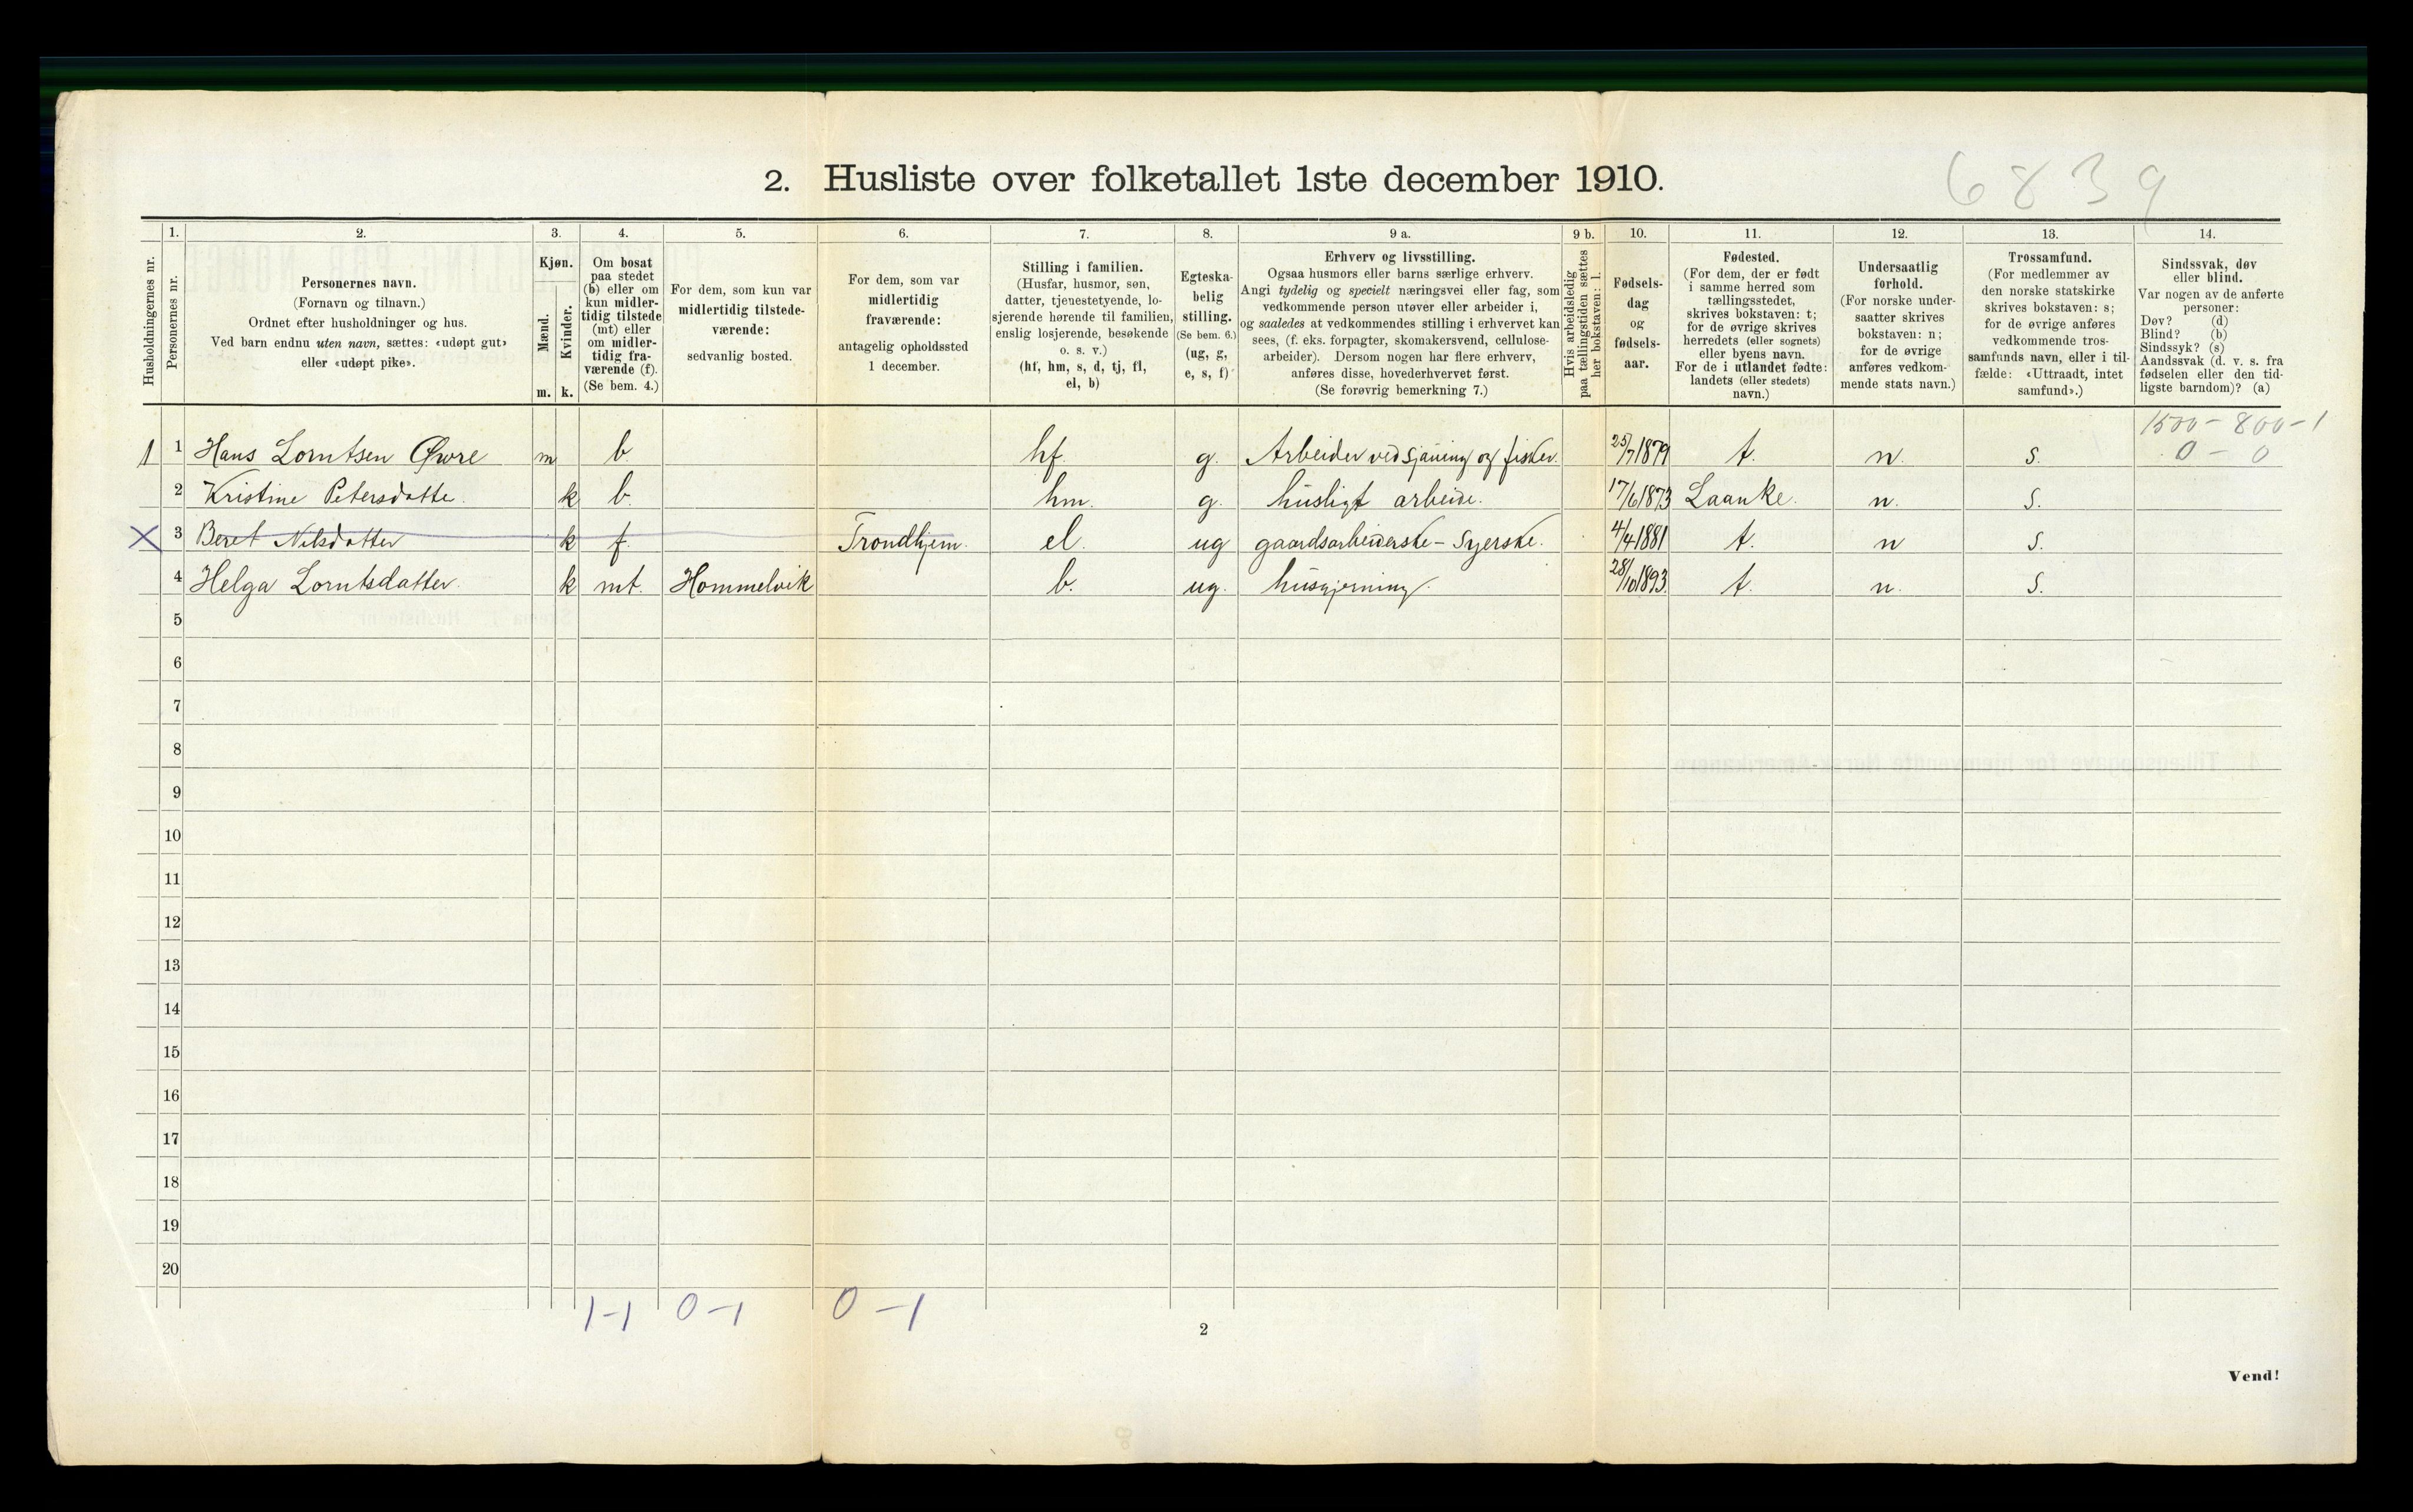 6839
2. Husliste over folketallet 1ste december 1910.
Husholdningernes nr.
1.
Personernes nr.
2.
Personernes navn.
(Fornavn og tilnavn.)
Ordnet efter husholdninger og hus.
Ved barn endnu uten navn, sættes: «udøpt gut»
eller «udøpt pike».
3.
Kjøn.
Mænd.
Kvinder.
m. k.
4.
Om bosat
paa stedet
(b) eller om
kun midler-
tidig tilstede
(mt) eller
om midler-
tidig fra-
værende (f).
(Se bem. 4.)
5.
For dem, som kun var
midlertidig tilstede-
værende:
sedvanlig bosted.
6.
For dem, som var
midlertidig
fraværende:
antagelig opholdssted
1 december.
7.
Stilling i familien.
(Husfar, husmor, søn,
datter, tjenestetyende, lo-
sjerende hørende til familien,
enslig losjerende, besøkende
o. s. v.)
(hf, hm, s, d, tj, fl,
el, b)
8.
Egteska-
belig
stilling.
(Se bem. 6.)
(ug, g,
e, s, f)
9 a.
Erhverv og livsstilling.
Ogsaa husmors eller barns særlige erhverv.
Angi tydelig og specielt næringsvei eller fag, som
vedkommende person utøver eller arbeider i,
og saaledes at vedkommendes stilling i erhvervet kan
sees, (f. eks. forpagter, skomakersvend, cellulose-
arbeider). Dersom nogen har flere erhverv,
anføres disse, hovederhvervet først.
(Se forøvrig bemerkning 7.)
9 b.
Hvis arbeidsledig
paa tællingstiden sættes
her bokstaven: l.
10.
Fødsels-
dag
og
fødsels-
aar.
11.
Fødested.
(For dem, der er født
i samme herred som
tællingsstedet,
skrives bokstaven: t;
for de øvrige skrives
herredets (eller sognets)
eller byens navn.
For de i utlandet fødte:
landets (eller stedets)
navn.)
12.
Undersaatlig
forhold.
(For norske under-
saatter skrives
bokstaven: n;
for de øvrige
anføres vedkom-
mende stats navn.)
13.
Trossamfund.
(For medlemmer av
den norske statskirke
skrives bokstaven: s;
for de øvrige anføres
vedkommende tros-
samfunds navn, eller i til-
fælde: «Uttraadt, intet
samfund».)
14.
Sindssvak, døv
eller blind.
Var nogen av de anførte
personer:
Døv? (d)
Blind? (b)
Sindssyk? (s)
Aandssvak (d. v. s. fra
fødselen eller den tid-
ligste barndom)? (a)
1500 - 800 - 1
1 1 Hans Lorntsen Øvre m b hf. g. Arbeider ved sjauing og fisker. 25/7 1879 t. n. s. 0 - 0
2 Kristine Petersdatte. k b. hm. g. husligt arbeide. 17/6 1873 Laanke. n. s.
X 3 Beret Nilsdatter k f. Trondhjem. el. ug gaardsarbeiderske - Syerske. 4/4 1881 t. n s.
4 Helga Lorntsdatter. k mt. Hommelvik b. ug. husgjerning. 28/10 1893. t. n. s.
5
6
7
8
9
10
11
12
13
14
15
16
17
18
19
20
1-1 0-1 0-1
2
Vend!